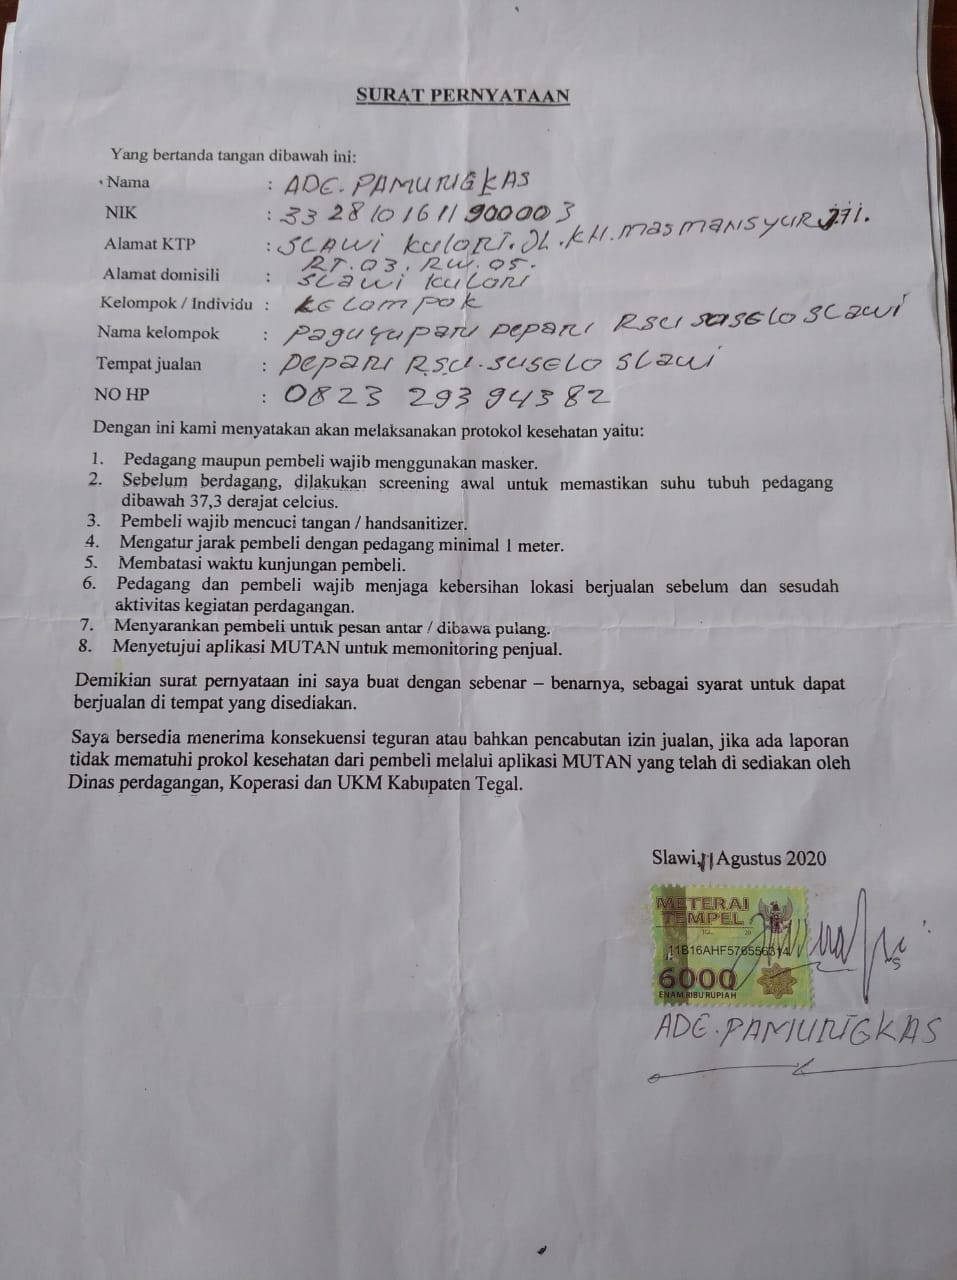 SURAT PERNYATAAN
Yang bertanda tangan dibawah ini:
Nama : ADE. PAMUNGKAS
NIK : 3328101611900003
Alamat KTP : SLAWI KULON. JL. KH. MAS MANSYUR
RT. 03. RW. 05.
Alamat domisili : SLAWI KULON
Kelompok / Individu : KELOMPOK
Nama kelompok : PAGUYUPAN DEPAN RSU SUSELO SLAWI
Tempat jualan : DEPAN RSU. SUSELO SLAWI
NO HP : 0823 2939 4382
Dengan ini kami menyatakan akan melaksanakan protokol kesehatan yaitu:
1. Pedagang maupun pembeli wajib menggunakan masker.
2. Sebelum berdagang, dilakukan screening awal untuk memastikan suhu tubuh pedagang
dibawah 37,3 derajat celcius.
3. Pembeli wajib mencuci tangan / handsanitizer.
4. Mengatur jarak pembeli dengan pedagang minimal 1 meter.
5. Membatasi waktu kunjungan pembeli.
6. Pedagang dan pembeli wajib menjaga kebersihan lokasi berjualan sebelum dan sesudah
aktivitas kegiatan perdagangan.
7. Menyarankan pembeli untuk pesan antar / dibawa pulang.
8. Menyetujui aplikasi MUTAN untuk memonitoring penjual.
Demikian surat pernyataan ini saya buat dengan sebenar – benarnya, sebagai syarat untuk dapat
berjualan di tempat yang disediakan.
Saya bersedia menerima konsekuensi teguran atau bahkan pencabutan izin jualan, jika ada laporan
tidak mematuhi prokol kesehatan dari pembeli melalui aplikasi MUTAN yang telah di sediakan oleh
Dinas perdagangan, Koperasi dan UKM Kabupaten Tegal.
Slawi, 11 Agustus 2020
METERAI
TEMPEL
TGL. 20
6000
ENAM RIBU RUPIAH
ADE. PAMUNGKAS